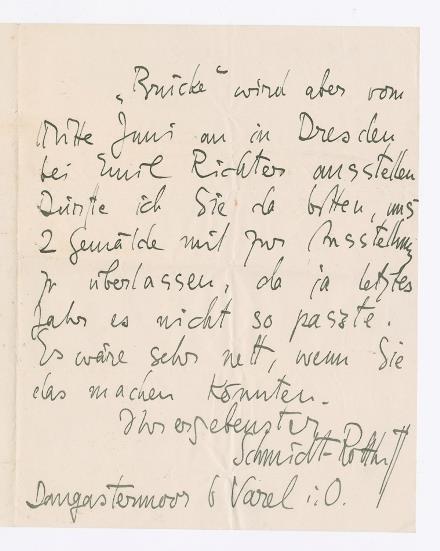 „Brücke“ wird aber vom
Mitte Juni an in Dresden
bei Emil Richters ausstellen
Dürfte ich Sie da bitten, uns
2 Gemälde mit zur Ausstellung
zu überlassen, da ja letztes
Jahr es nicht so passte.
Es wäre sehr nett, wenn Sie
das machen könnten.
Ihr ergebenster
Schmidt-Rottluff
Dangastermoor b Varel i. O.